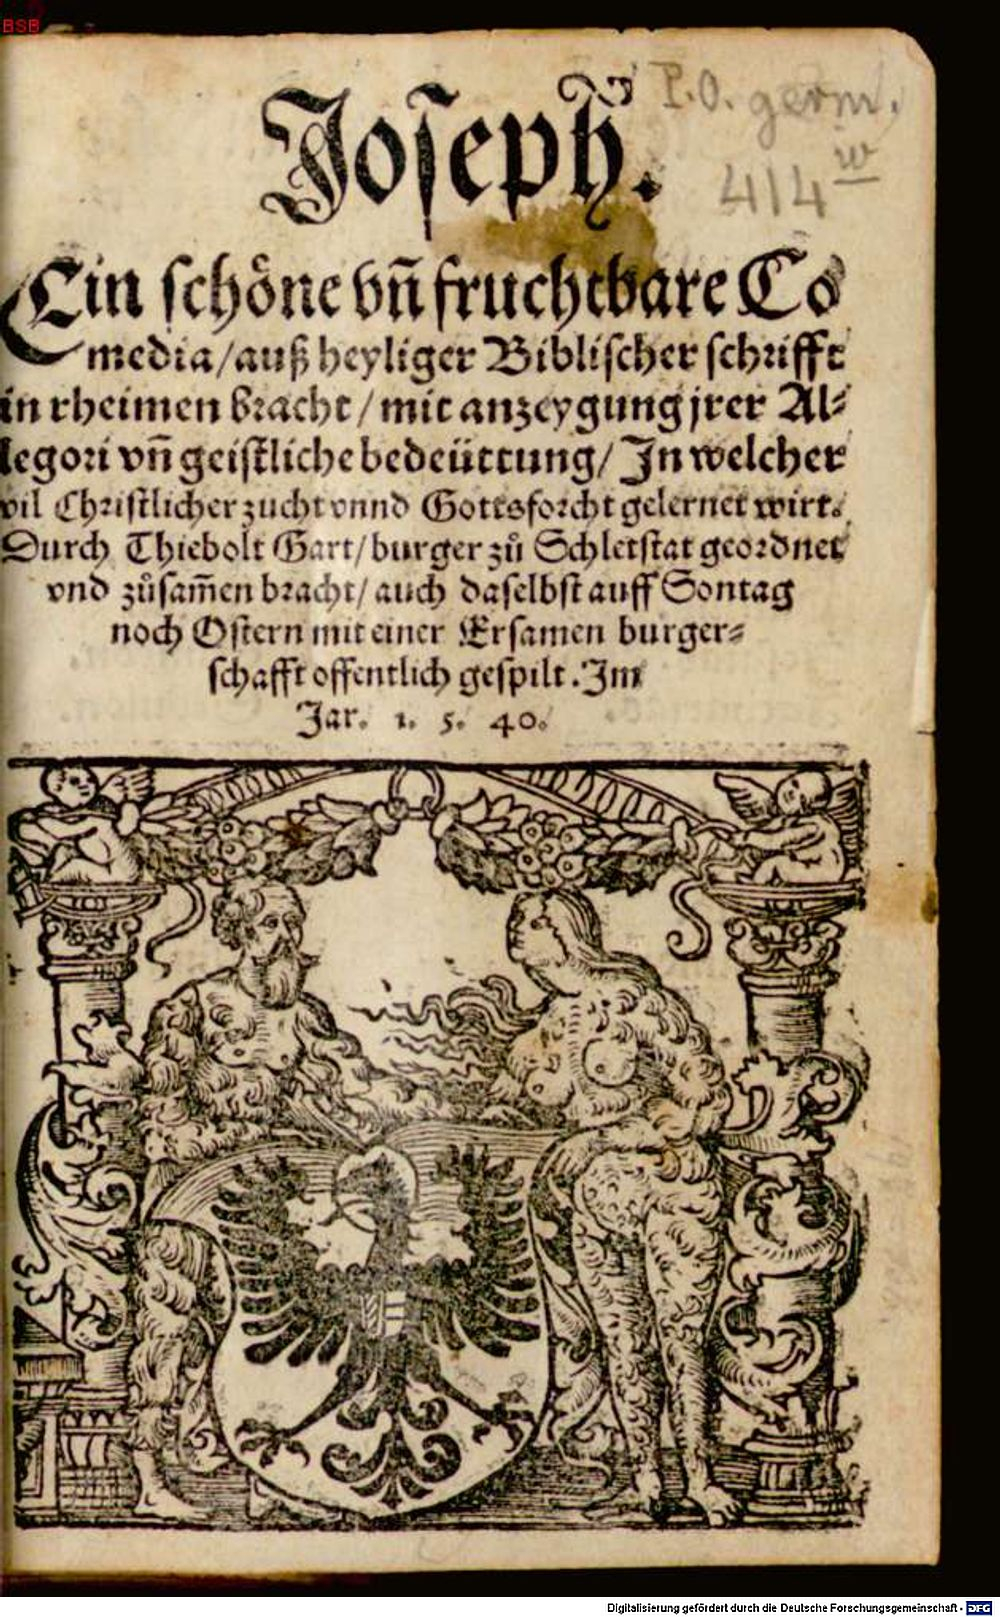 BSB
P.O. germ.
414 w
Joſeph.
Ein ſchöne vñ fruchtbare Co
media/auß heyliger Bibliſcher ſchrifft
in rheimen bracht/ mit anzeygung jrer Al⸗
legori vñ geiſtliche bedeüttung/ In welcher
vil Chriſtlicher zucht vnnd Gottsforcht gelernet wirt.
Durch Thiebolt Gart/burger zů Schletſtat geordnet
vnd zůſam̃en bracht/ auch daſelbſt auff Sontag
noch Oſtern mit einer Erſamen burger⸗
ſchafft offentlich geſpilt. Im
Jar. 1. 5. 40.
Digitalisierung gefördert durch die Deutsche Forschungsgemeinschaft - DFG